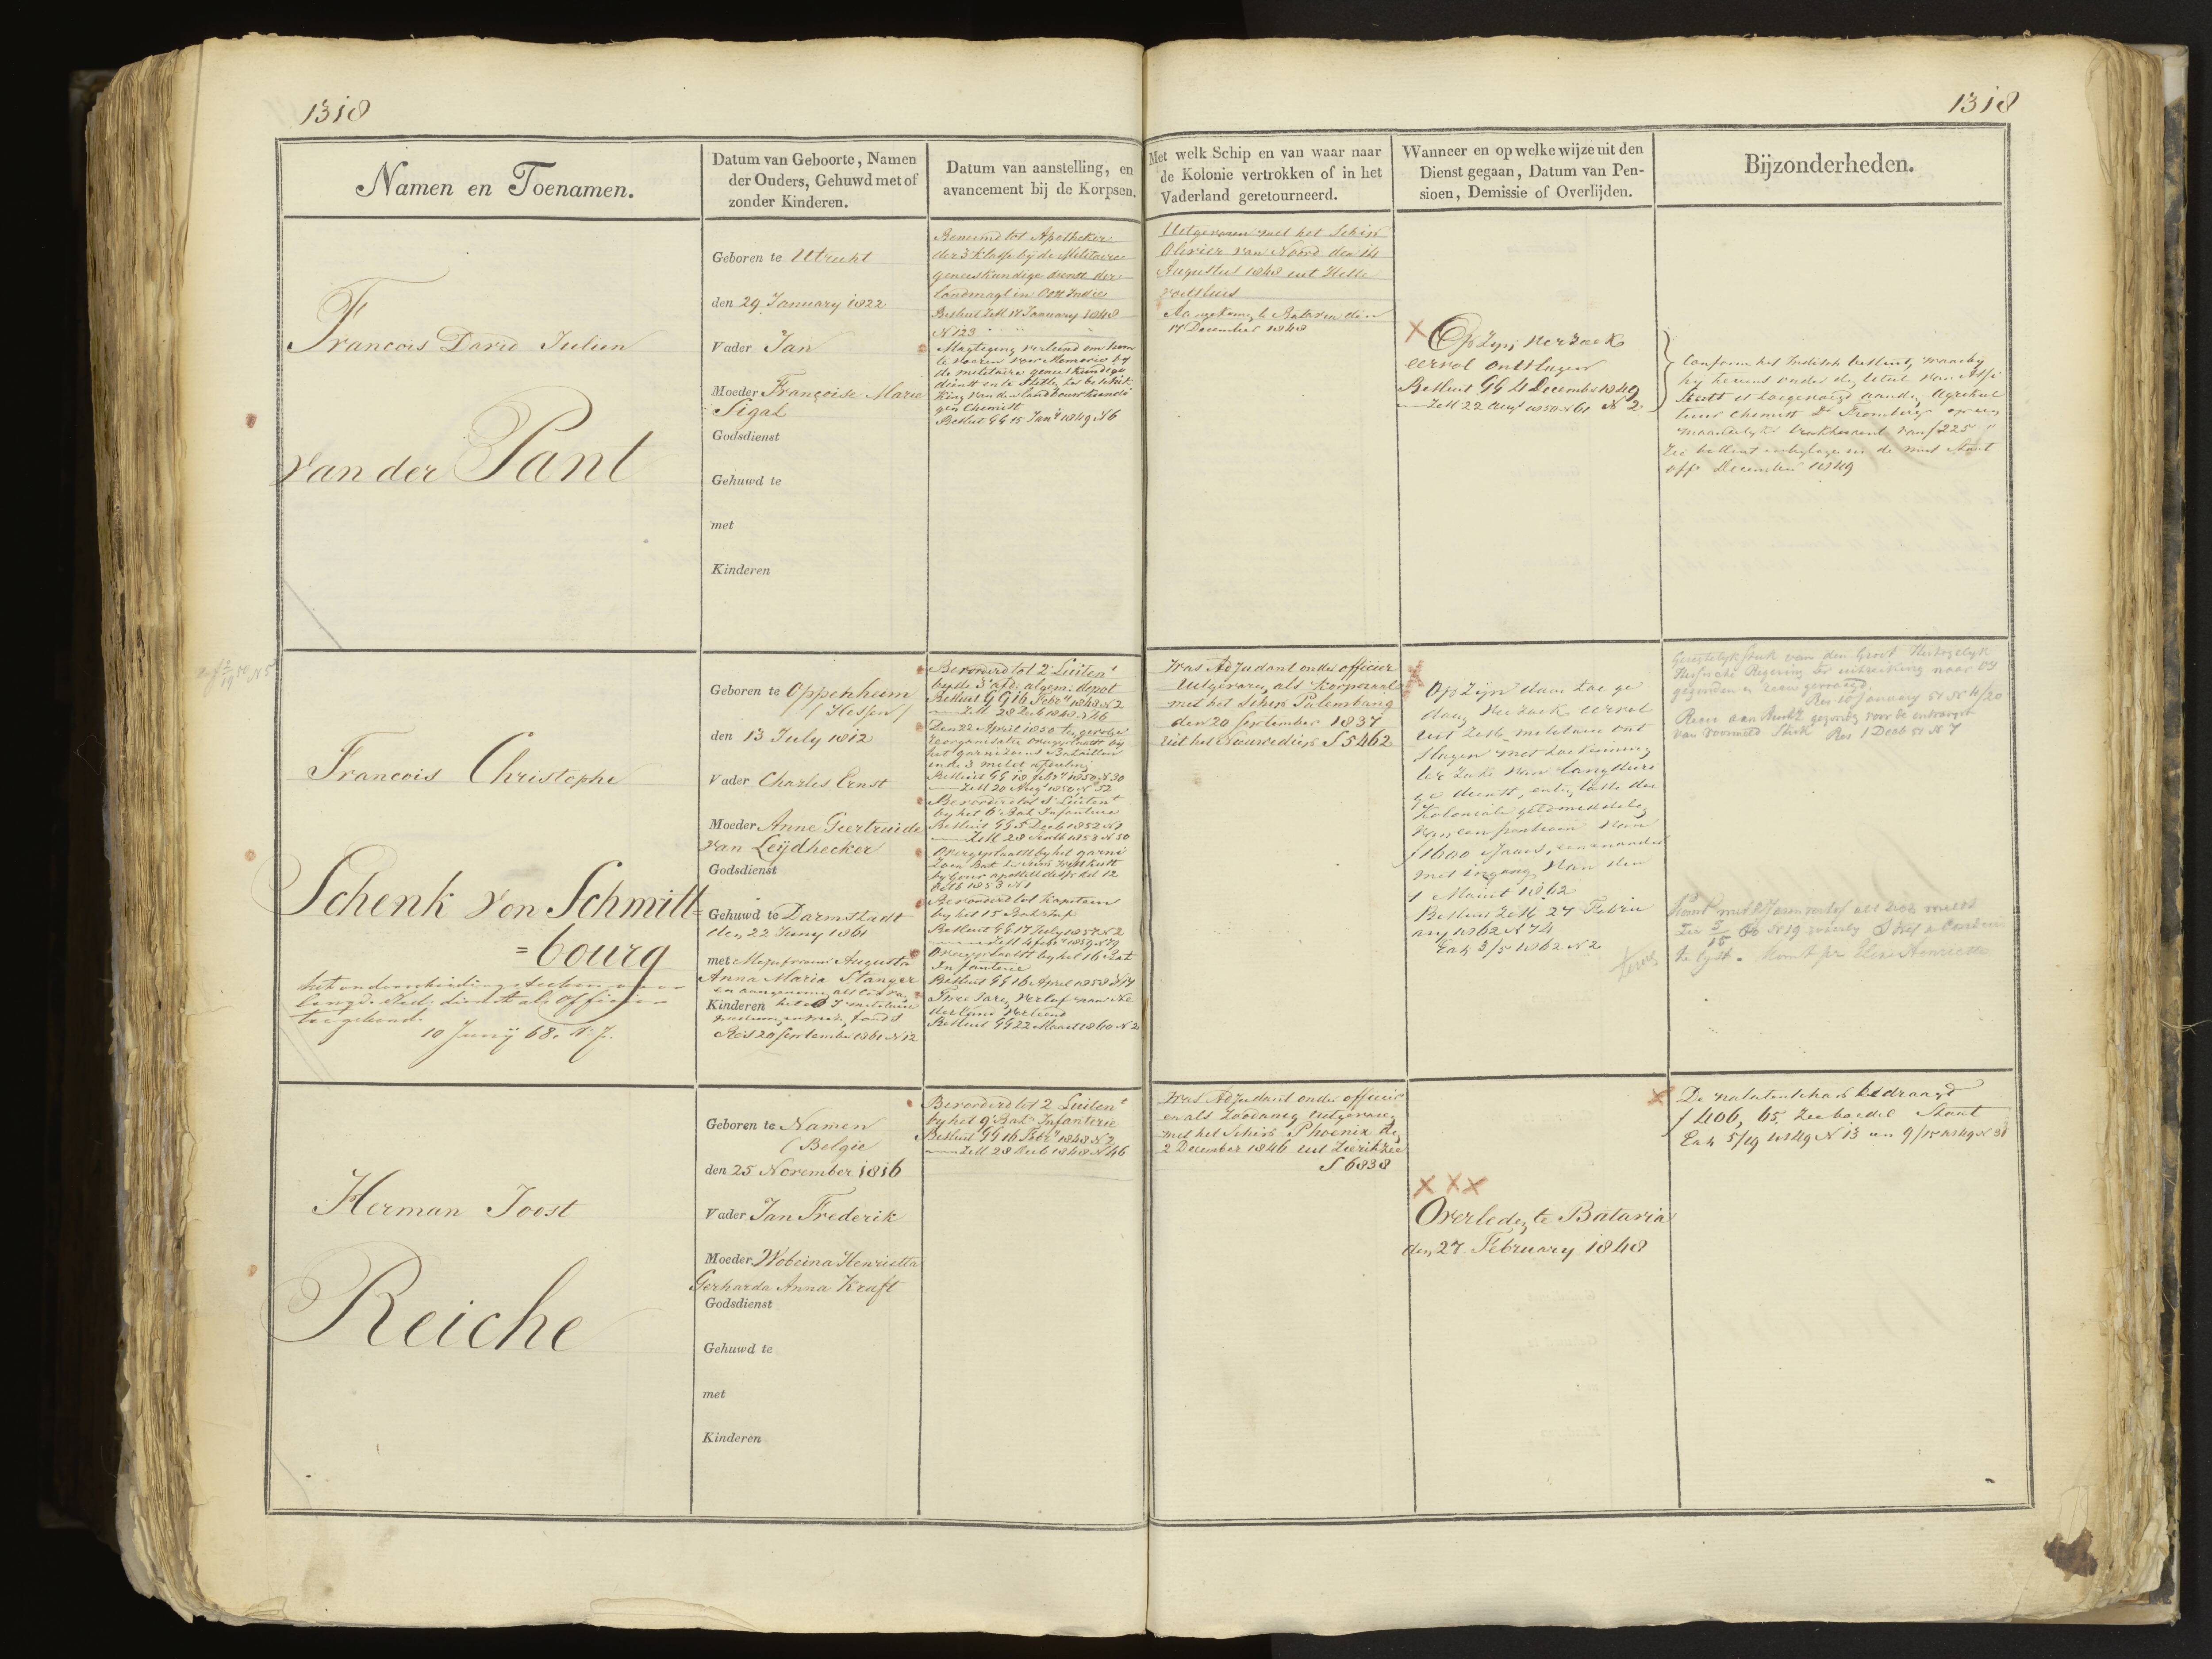 1318
1318
Namen en Toenamen.
Datum van Geboorte, Namen
der Ouders, Gehuwd met of
zonder Kinderen.
Datum van aanstelling, en
avancement bij de Korpsen.
Met welk Schip en van waar naar
de Kolonie vertrokken of in het
Vaderland geretourneerd.
Wanneer en op welke wijze uit den
Dienst gegaan, Datum van Pen-
sioen, Demissie of Overlijden.
Bijzonderheden.
Francois David Julien
van der Pant
Geboren te Utrecht
den 29 January 1822
Vader Jan
Moeder Françoise Marie
Sigal
Godsdienst
Gehuwd te
met
Kinderen
Benoemd tot Apotheker
der 3e klasse bij de Militaire
geneeskundige dienst der
landmagt in Oost Indie
Besluit ZM 17 January 1848
N 123
Magtiging verleend om hem
te voeren voor Memorie by
de militaire geneeskundige
dienst en te stellen ter beschik
king van den landbouwkundi
gen Chemist
Besluit GG 15 Jany 1849 N 6
Uitgevaren met het Schip
Olivier van Noord den 14
Augustus 1848 uit Helle
voetsluis
Aangekomen te Batavia den
17 December 1848
Op Zyn verzoek
eervol ontslagen
Besluit GG 4 December 1849
ZM 22 Augt 1850 N 61 N 2
Conform het Indisch besluit, waarby
hy tevens onder den titel van Assi
stent is toegevoegd aan den Agricul
tuur Chemist Dr Fromberg op een
maandelyks traktement van f 225
Zie besluit en bylage in de mut Staat
offr December 1849
Francois Christophe
Schenk von Schmitt=
=bourg
het onderscheidingsteeken voor
langd. Ned. dienst als officier
toegekend.
10 Juny 68. N 7.
Geboren te Oppenheim
(Hessen)
den 13 July 1812
Vader Charles Ernst
Moeder Anne Geertruide
van Leydhecker
Godsdienst
Gehuwd te Darmstadt
den 22 Juny 1861
met Mejufvrouw Augusta
Anna Maria Stanger
en aangenomen als
Kinderen het O I militaire
fonds
Res 20 September 1861 N 12
Bevorderd tot 2e Luitent
by de 3e afd: algem: depot
Besluit GG 16 Febry 1848 N 2
ZM 28 Decb 1848 N 46
Den 22 April 1850 ten gevolge
reorganisatie overgeplaatst by
het garnizoens Bataillon
in de 3 milit afdeeling
Besluit GG 18 Febry 1850 N 30
ZM 20 Augt 1850 N 52
Bevorderd tot 1e Luitent
by het 6e Bat Infanterie
Besluit GG 5 Decb 1852 N 1
ZM 28 1853 N 50
Overgeplaatst by het garni
zoen Bat
Bevorderd tot Kapitein
by het 15 Bat Inf
Besluit GG 17 July 1857 N 2
ZM 4 febry 1859 N 79
Overgeplaatst by het 16 Bat
Infanterie
Besluit GG 16 April 1858 N 14
Twee Jaren verlof naar Ne
derland verleend
Besluit GG 22 Maart 1860 N 2
Was Adjudant onder officier
Uitgevaren als Korporaal
met het Schip Palembang
den 20 September 1837
uit het Nieuwediep S 5462
Op Zyn daartoe ge
daan verzoek eervol
uit ZM militaire ont
slagen met toekenning
ter zake van langduri
ge dienst, en ten laste der
Koloniale geldmiddelen
van een pensioen van
f 1600 Jaars, een en ander
met ingang van den
1 Maart 1862
Besluit ZM 27 Febru
ary 1862 N 74
Exh 3/5 1862 N 2
tevens
Geregtelyk stuk van den Groot Hertogelyk
Hessische Regering ter uitreiking naar OI
gezonden
Res 10 January 51 N 4/20
Res 1 Decb 51 N 7
Herman Joost
Reiche
Geboren te Namen
(Belgie
den 25 November 1816
Vader Jan Frederik
Moeder Wobeina Henrietta
Gerharda Anna Kraft
Godsdienst
Gehuwd te
met
Kinderen
Bevorderd tot 2 Luitent
by het 9e Bat Infanterie
Besluit GG 16 Febry 1848 N 2
ZM 28 Decb 1848 N 46
Was Adjudant onder officier
en als Zoodanig uitgevaren
met het Schip Phoenix den
2 December 1846 uit Zierikzee
S 6838
Overleden te Batavia
den 27 February 1848
De nalatenschap bedraagt
f 406,65 zie boedel Staat
Exh 5/19 1849 N 13 en 9/15 1849 N 31